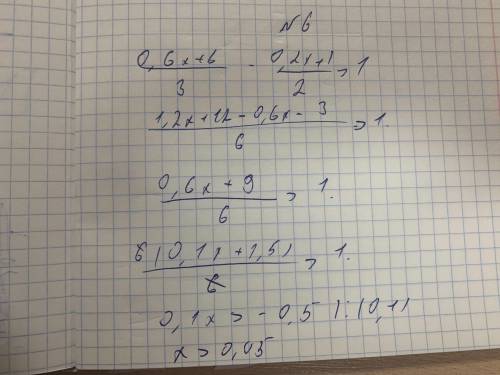 №6
(0,6x+6)/3 - (0,2x+1)/2 > 1
(1,2x+12-0,6x-3)/6 > 1.
(0,6x+9)/6 > 1.
6(0,1x+1,5)/6 > 1.
0,1x > -0,5 |:(0,1)
x > 0,05